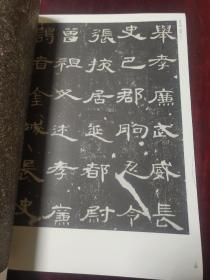 舉孝廉武威長
史巴郡朐忍令
張掖居延都尉
曾祖父述孝廉
謁者金城長史